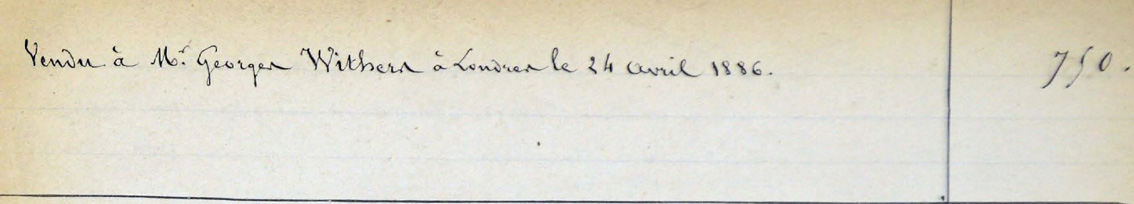 Vendu à Mr. Georges Withers à Londres le 24 avril 1886. 750.